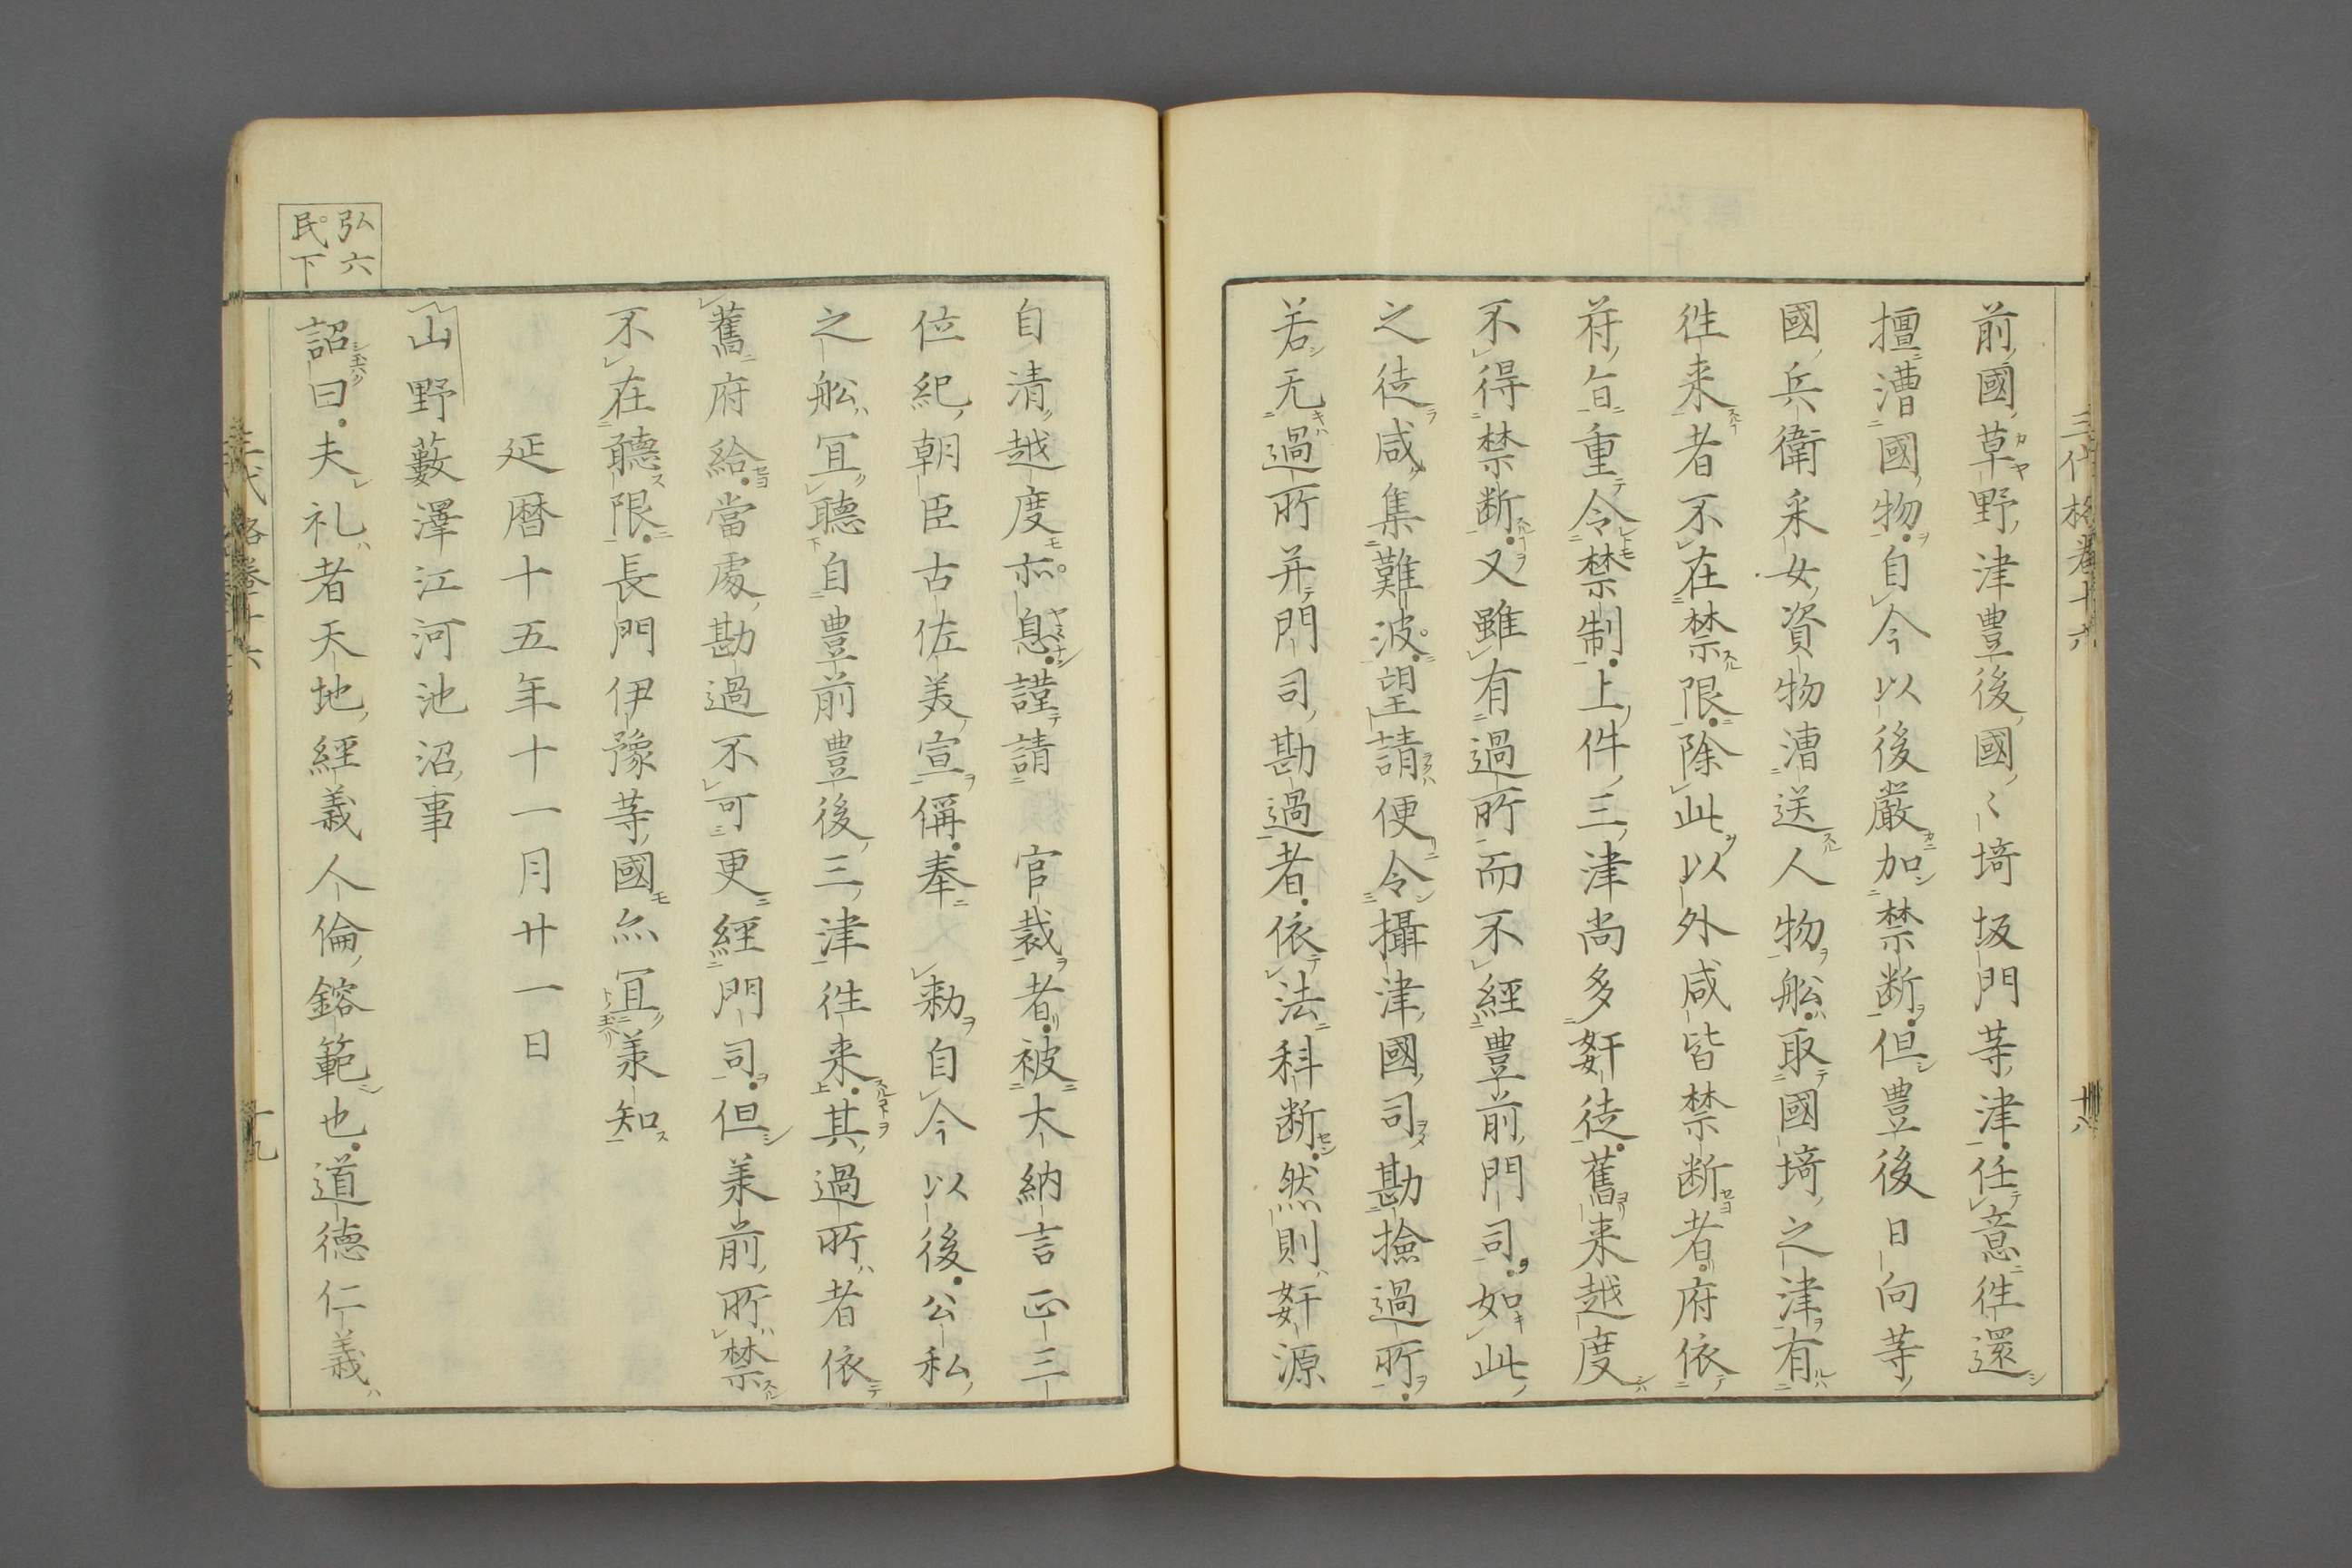 三代格卷十六
十八
前國草野津豊後國〻埼坂門等津任意徃還
擅漕國物自今以後嚴加禁断但豊後日向等
國兵衛采女資物漕送人物舩取國埼之津有
徃来者不在禁限除此以外咸皆禁断者府依
符旨重令禁制上件三津尚多姧徒舊来越度
不得禁断又雖有過所而不經豊前門司如此
之徒咸集難波望請便令攝津國司勘撿過所
若无過所并門司勘過者依法科断然則姧源
自清越度亦息謹請　官裁者被大納言正三
位紀朝臣古佐美宣偁奉　勅自今以後公私
之舩冝聽自豊前豊後三津徃来其過所者依
舊府給當處勘過不可更經門司但美前所禁
不在聽限長門伊豫等國亦冝美知
延暦十五年十一月廿一日
山野藪澤江河池沼事
弘六
民下
詔曰夫礼者天地經義人倫鎔範也道德仁義
三代格卷十六
十九